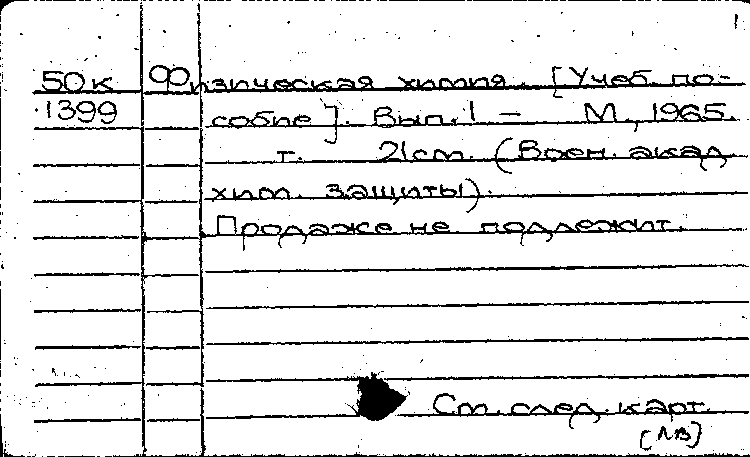 1
50к Физическая химия. [Учеб. по-
1399 собие]. Вып. 1 – М., 1965.
т. 21см. (Воен. акад.
хим. защиты).
Продаже не подлежит.
См. след. карт.
[ЛВ]